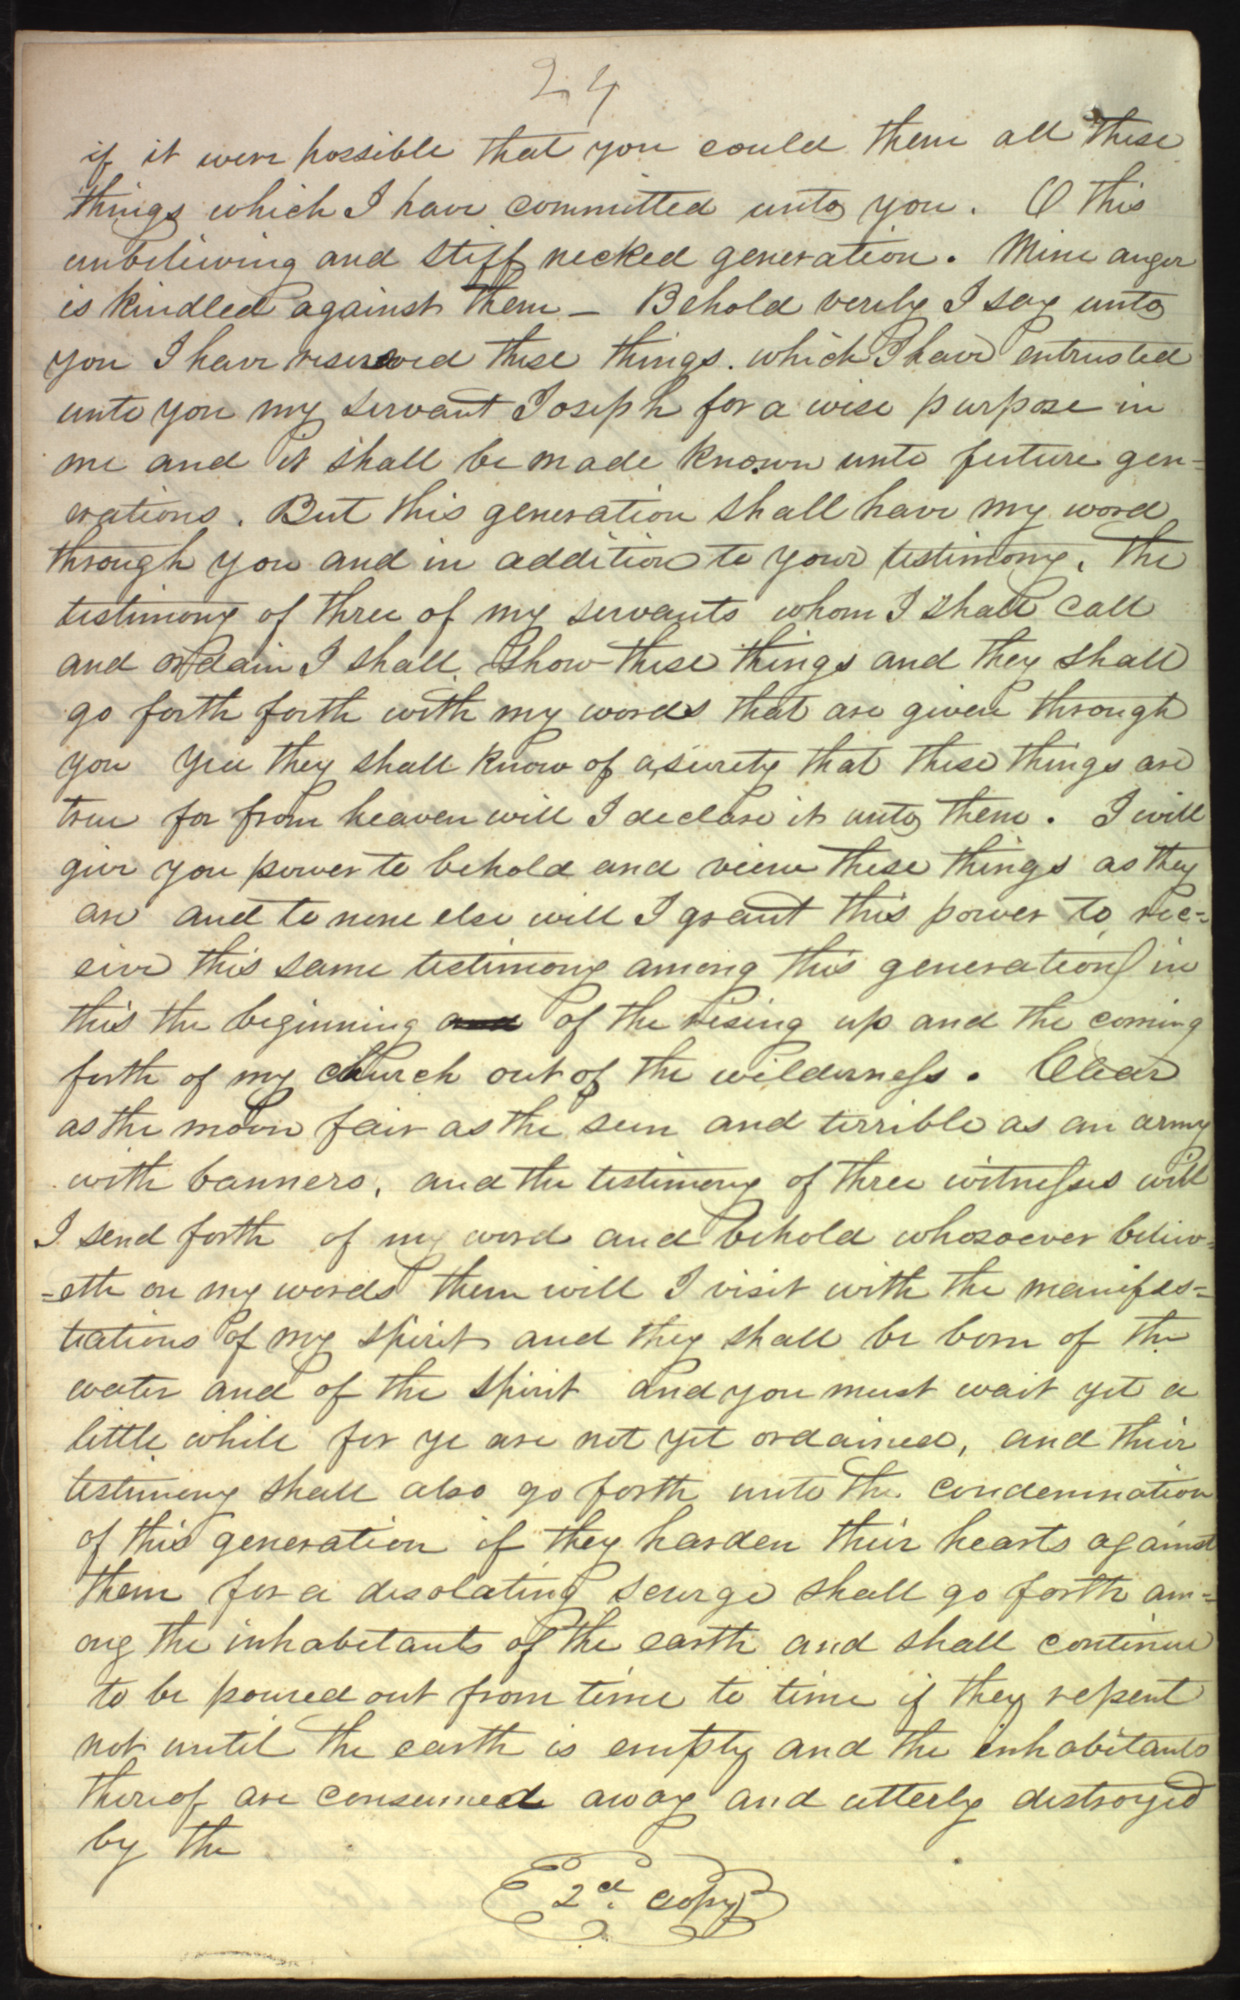 24
if it were possible that you could them all these
things which I have committed unto you. O this
unbelieving and stiff necked generation. Mine anger
is kindled against them – Behold verily I say unto
you I have reserved these things. which I have entrusted
unto you my servant Joseph for a wise purpose in
me and it shall be made known unto future gen=
erations. But this generation shall have my word
through you and in addition to your testimony, the
testimony of three of my servants whom I shall call
and ordain I shall show these things and they shall
go forth forth with my words that are given through
you Yea they shall know of a surety that these things are
true for from heaven will I declare it unto them. I will
give you power to behold and view these things as they
are and to none else will I grant this power to rec=
eive this same testimony among this generation in
this the beginning and of the rising up and the coming
forth of my church out of the wilderness. Clear
as the moon fair as the sun and terrible as an army
with banners, and the testimony of three witnesses will
I send forth of my word and behold whosoever believ=
=eth on my words them will I visit with the manifes=
tations of my spirit and they shall be born of the
water and of the spirit and you must wait yet a
little while for ye are not yet ordained, and their
testimony shall also go forth unto the condemnation
of this generation if they harden their hearts against
them for a desolating scurge shall go forth am=
ong the inhabitants of the earth and shall continue
to be poured out from time to time if they repent
not until the earth is empty and the inhabitants
thereof are consumed away and utterly destroyed
by the
2d. copy